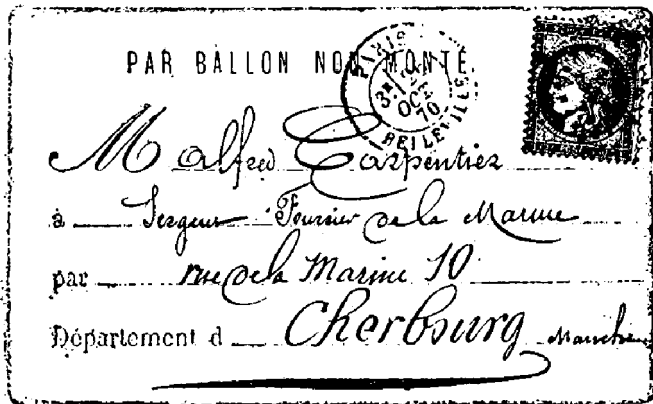 PAR BALLON NON MONTÉ.
PARIS
OCT
70
BELLEVILLE
M Alfred Carpentier
à Sergent Fourrier de la Marine
par rue de la Marine 10
Département d Cherbourg